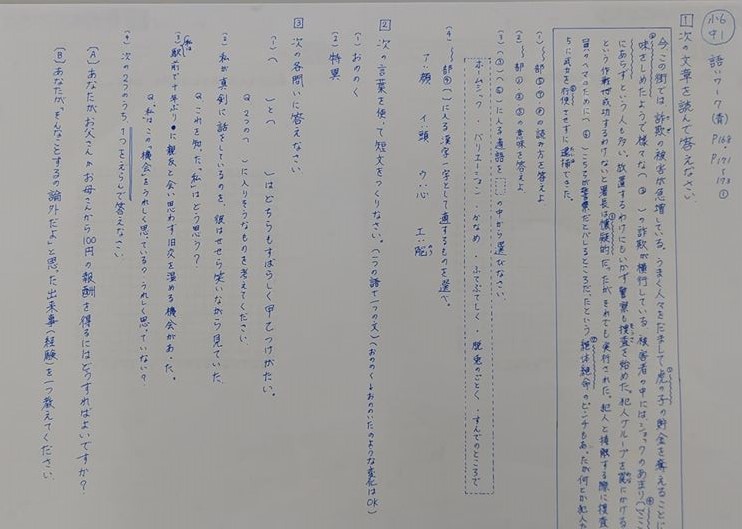 小6
中1
語いワーク(青) P168・P171~173 ①
1 次の文章を読んで答えなさい
今この街では詐欺の被害が急増している。うまく人々をだまして虎の子の貯金を奪えることに
味をしめたようで様々な( )の詐欺が横行している。被害者の中にはショックのあまり( )ここ
にあらずという人も多い。放置するわけにもいかず警察も捜査を始めた。犯人グループを罠にかける
という作戦が成功するわけないと署長は懐疑的だ。だが、それでも実行された。犯人と接触する際に捜査
員のヘマのために( )こちらが警察だとバレるところだったという絶体絶命のピンチもあったが何とか犯人た
ちに武力を行使せずに逮捕できた。
(1)〰部①⑦⑧の読み方を答えよ
(2)〰部①②⑤の意味を答えよ
(3)(③)(⑥)に入る適語を の中から選びなさい。
ホームシック ・ バリエーション ・ かなめ ・ ふてぶてしく ・ 脱兎のごとく ・ すんでのところで
(4)〰部④( )に入る漢字一字として適するものを選べ。
ア:顔 イ:頭 ウ:心 エ:腕
2 次の言葉を使って短文をつくりなさい。(一つの語で一つの文)(おののく→おののいたのような変化はOK)
(1)おののく
(2)特異
3 次の各問いに答えなさい
(1)( )と( )はどちらもすばらしく甲乙つけがたい。
Q 2つの( )に入りそうなものを考えてください
(2)私が真剣に話をしているのを、彼はせせら笑いながら見ていた。
Q これを知った「私」はどう思う?
(3)私は駅前で十年ぶりに親友と会い思わず旧交を温める機会があった。
Q 「私」はこの「機会」をうれしく思っている? うれしく思っていない?
(4)次の2つのうち1つをえらんで答えなさい
(A) あなたがお父さんかお母さんから100円の報酬を得るにはどうすればよいですか?
(B) あなたが「そんなことするの論外だよ」と思った出来事(経験)を一つ教えてください